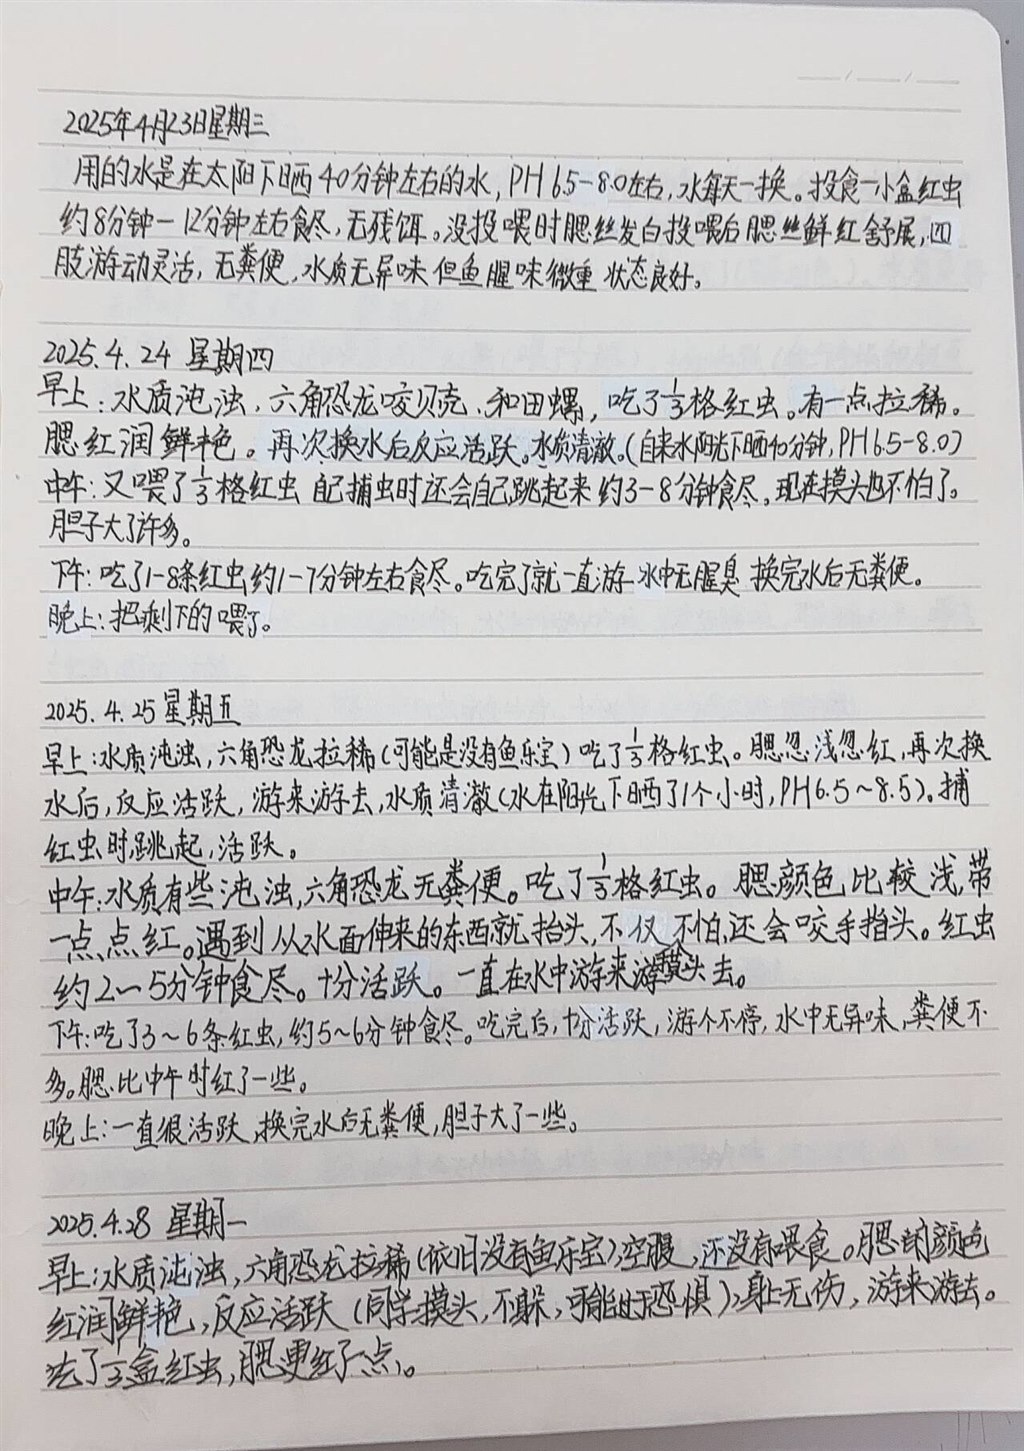 2025年4月23日星期三
用的水是在太阳下晒40分钟左右的水,PH6.5-8.0左右,水每天一换。投食一小盒红虫
约8分钟-12分钟左右食尽,无残饵。没投喂时腮丝发白投喂后腮丝鲜红舒展,四
肢游动灵活,无粪便,水质无异味但鱼腥味微重 状态良好。
2025.4.24 星期四
早上:水质沌浊,六角恐龙咬贝壳、和田螺,吃了1/3格红虫。有一点拉稀。
腮红润鲜艳。再次换水后反应活跃。水质清澈。(自来水阳光下晒40分钟,PH6.5-8.0)
中午:又喂了1/3格红虫 自己捕虫时还会自己跳起来 约3-8分钟食尽。现在摸头也不怕了。
胆子大了许多。
下午:吃了1-8条红虫约1-7分钟左右食尽。吃完了就一直游 水中无腥臭 换完水后无粪便。
晚上:把剩下的喂了。
2025.4.25星期五
早上:水质沌浊,六角恐龙拉稀(可能是没有鱼乐宝)吃了1/3格红虫。腮忽浅忽红,再次换
水后,反应活跃,游来游去,水质清澈(水在阳光下晒了1个小时,PH6.5~8.5)。捕
红虫时,跳起,活跃。
中午:水质有些沌浊,六角恐龙无粪便。吃了1/3格红虫。腮颜色比较浅,带
一点点红。遇到从水面伸来的东西就抬头,不仅不怕,还会咬手指头。红虫
约2~5分钟食尽。十分活跃。一直在水中游来游去。
下午:吃了3~6条红虫,约5~6分钟食尽。吃完后,十分活跃,游个不停,水中无异味,粪便不
多。腮比中午时红了一些。
晚上:一直很活跃,换完水后无粪便,胆子大了一些。
2025.4.28 星期一
早上:水质沌浊,六角恐龙拉稀(依旧没有鱼乐宝)空腹,还没有喂食。腮的颜色
红润鲜艳,反应活跃(同学摸头,不躲,可能出于恐惧),身上无伤,游来游去。
吃了1/3盒红虫,腮更红了一点。